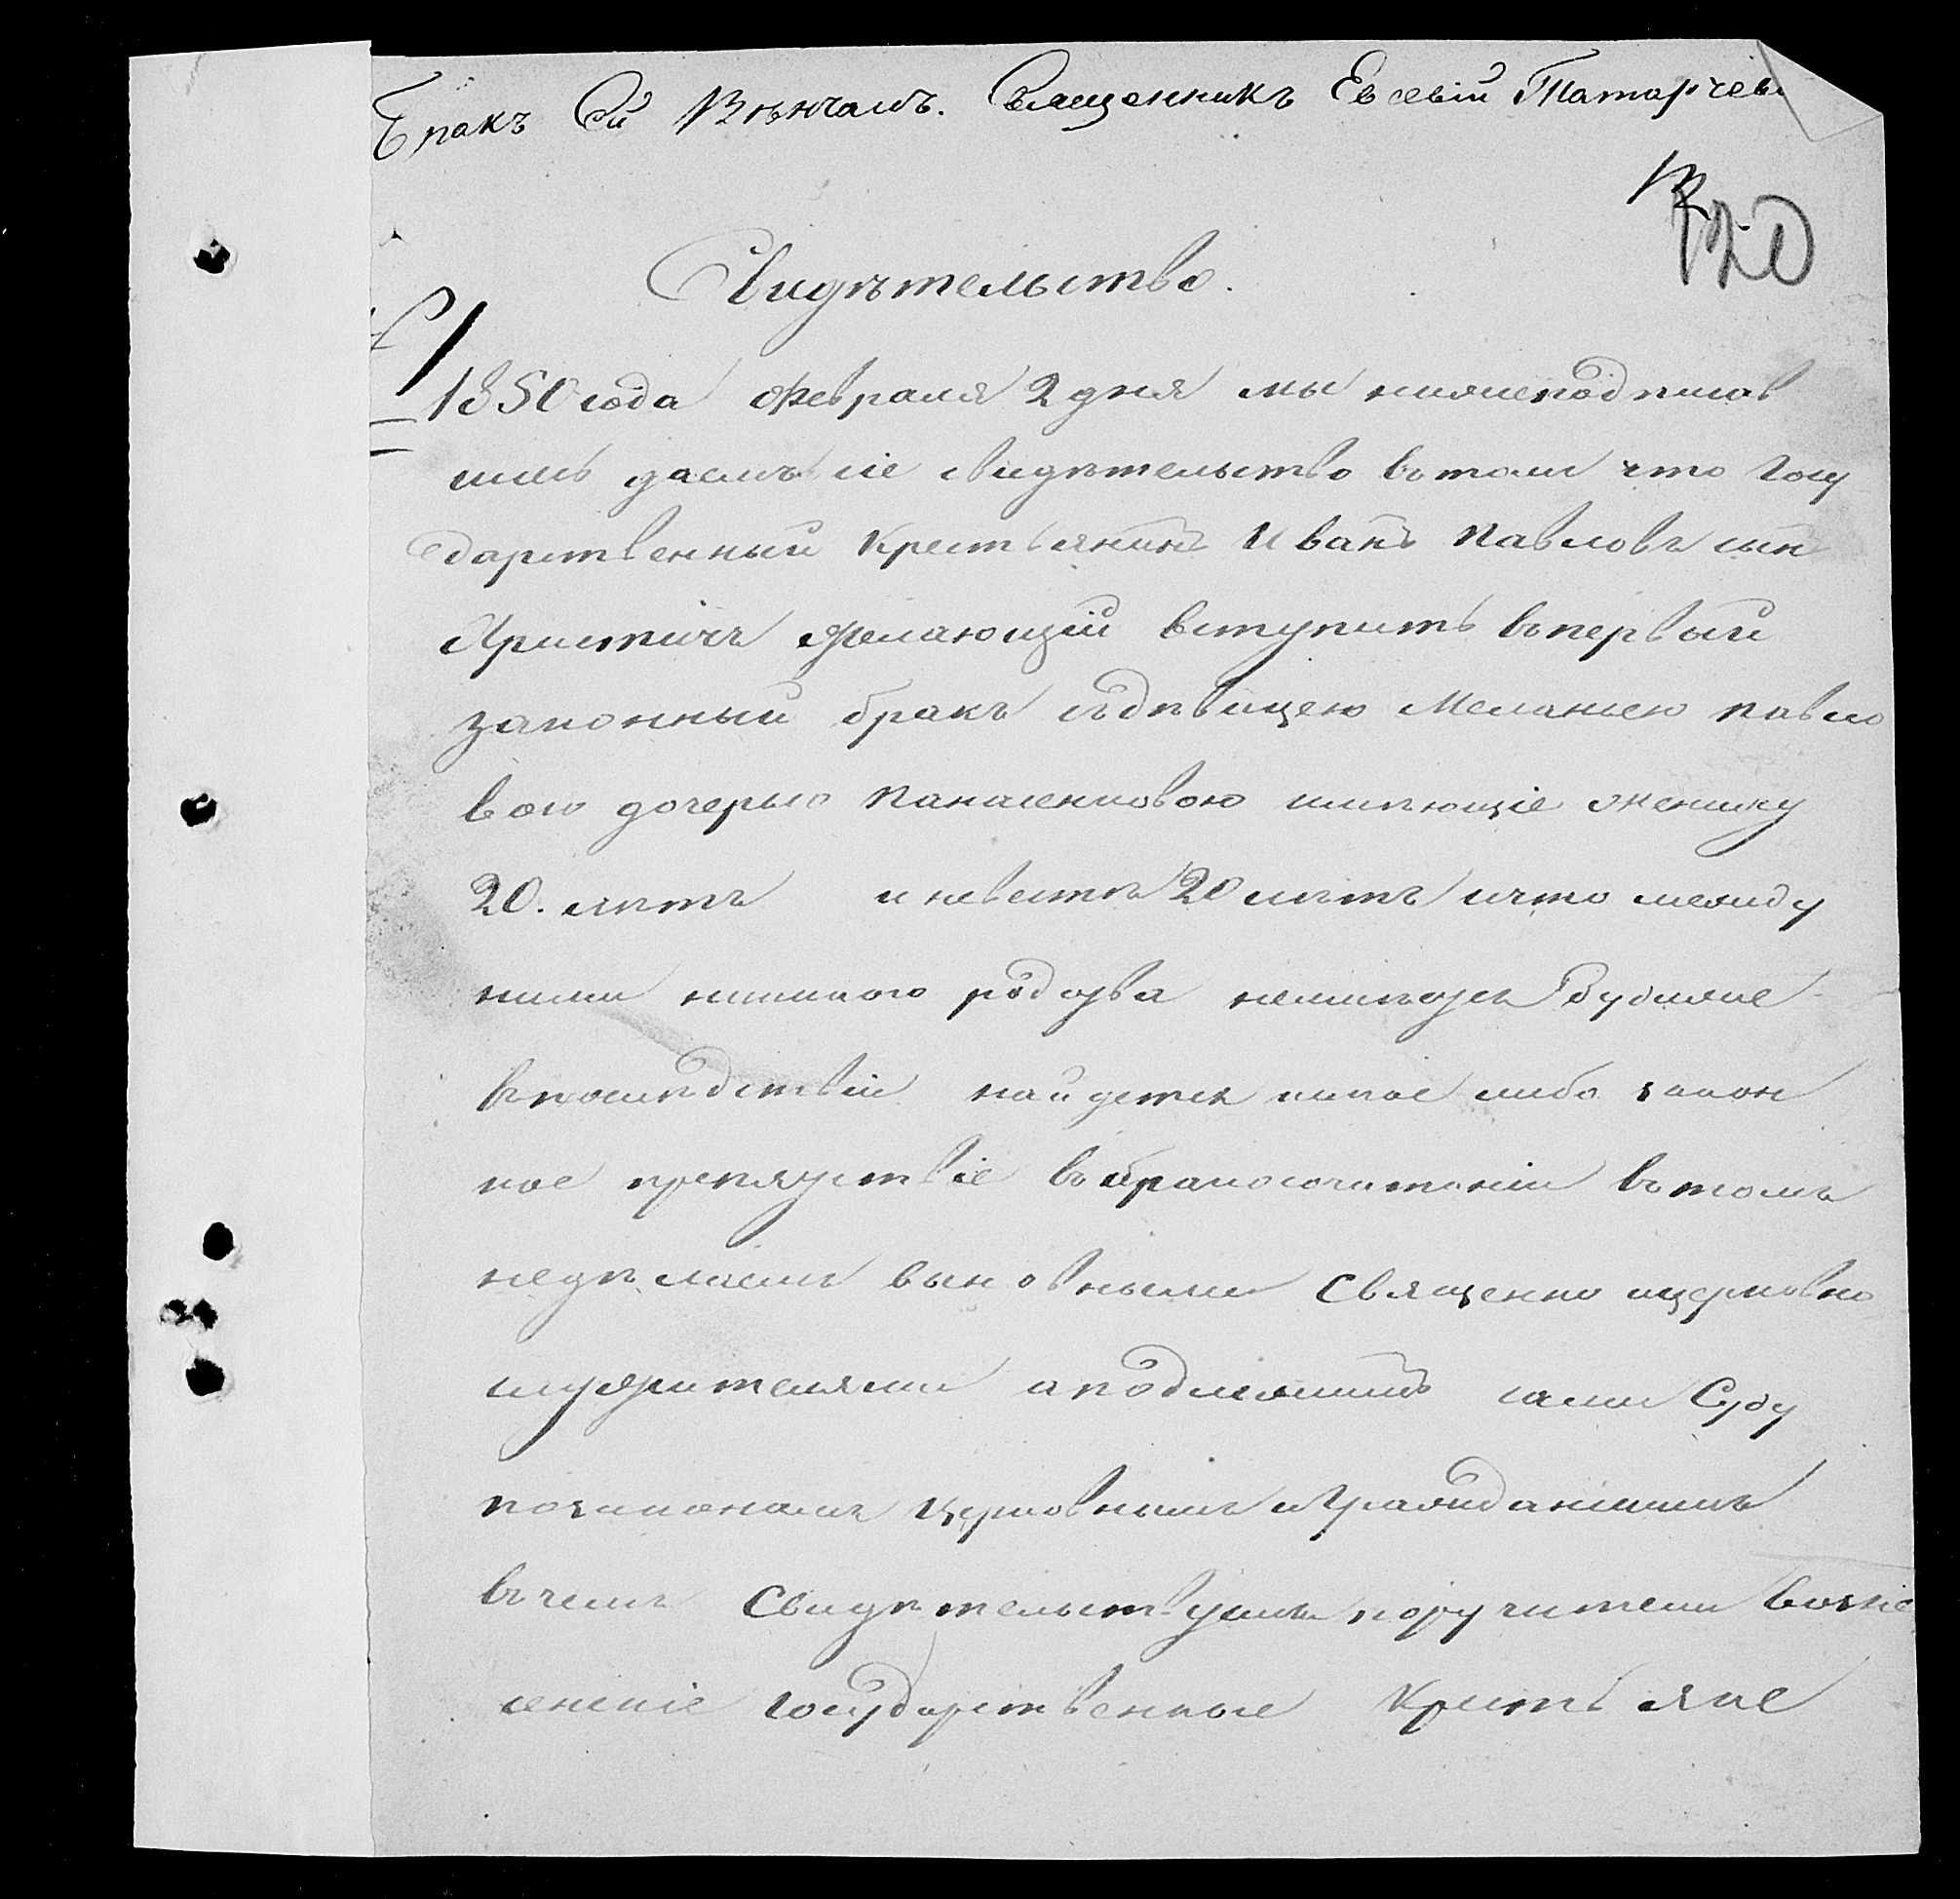 Бракъ Сей Вѣнчалъ. Священникъ Евсевій Татарчев
120
Свидѣтельство.
1850 года Февраля 2 дня мы нижеподписав
шись даемъ сіе свидѣтельство въ томъ что Госу
дарственный Крестьянинъ Иванъ Павловъ сынъ
желающій вступить въ первый
законный бракъ съ дѣвицею Меланьею Павло
вою дочерью Панасенковою имѣющіе жениху
20. лѣтъ и невестѣ 20 лѣтъ и что между
ними никакого родства неимѣется Буде же
въ послѣдствіи найдется какое либо закон
ное препятствіе въ бракосочитаніи въ томъ
недѣлаемъ выновными Священно и церковно
служителями а подлежимъ сами Суду
по законамъ Церковнымъ и Гражданскимъ
въ чемъ Свидѣтельствуемъ поручители
Государственные Крестьяне